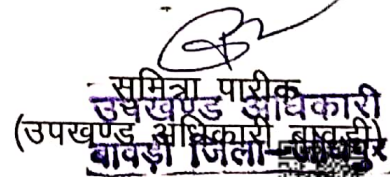 सुमित्रा पारीक
उपखण्ड अधिकारी
(उपखण्ड अधिकारी बावडी)
बावडी जिला-जोधपुर